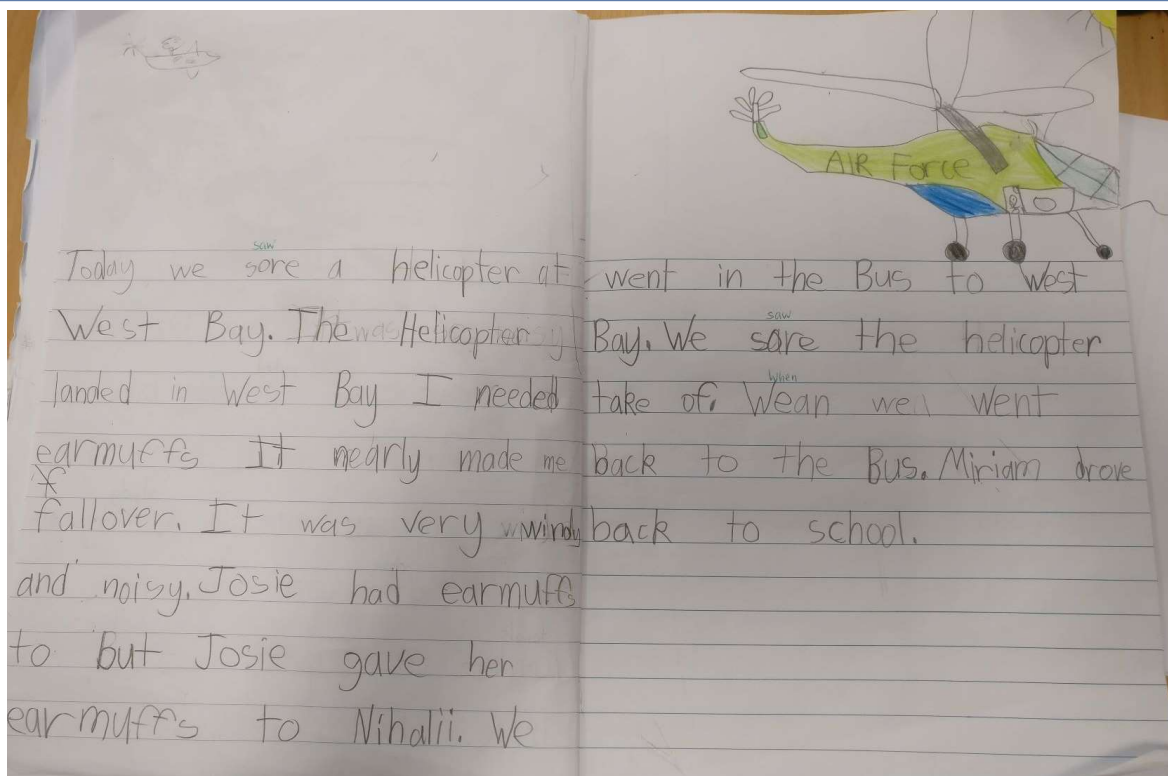 saw
Today we sore a helicopter at
West Bay. The Helicopter
landed in West Bay I needed
earmuffs It nearly made me
fallover. It was very windy
and noisy. Josie had earmuffs
to but Josie gave her
earmuffs to Nihalii. We
AIR Force
went in the Bus to West
saw
Bay. We sare the helicopter
when
take of. Wean we went
back to the Bus. Miriam drove
back to school.